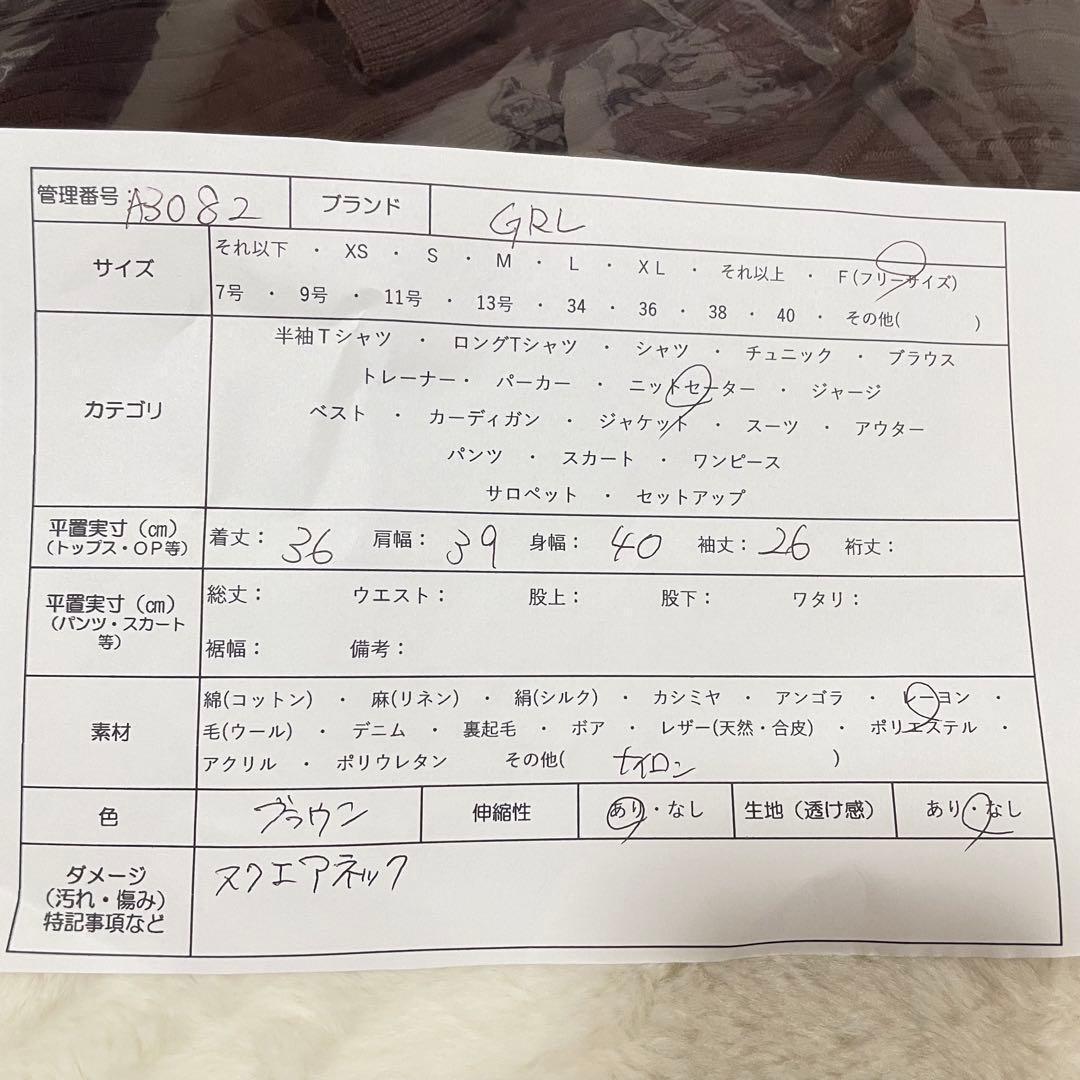 管理番号 A3082 ブランド GRL
サイズ それ以下 ・ XS ・ S ・ M ・ L ・ XL ・ それ以上 ・ F(フリーサイズ)
7号 ・ 9号 ・ 11号 ・ 13号 ・ 34 ・ 36 ・ 38 ・ 40 ・ その他( )
カテゴリ 半袖Tシャツ ・ ロングTシャツ ・ シャツ ・ チュニック ・ ブラウス
トレーナー・ パーカー ・ ニットセーター ・ ジャージ
ベスト ・ カーディガン ・ ジャケット ・ スーツ ・ アウター
パンツ ・ スカート ・ ワンピース
サロペット ・ セットアップ
平置実寸(㎝)
(トップス・OP等) 着丈: 36 肩幅: 39 身幅: 40 袖丈: 26 裄丈:
平置実寸(㎝)
(パンツ・スカート
等) 総丈: ウエスト: 股上: 股下: ワタリ:
裾幅: 備考:
素材 綿(コットン) ・ 麻(リネン) ・ 絹(シルク) ・ カシミヤ ・ アンゴラ ・ レーヨン ・
毛(ウール) ・ デニム ・ 裏起毛 ・ ボア ・ レザー(天然・合皮) ・ ポリエステル ・
アクリル ・ ポリウレタン その他( ナイロン )
色 ブラウン 伸縮性 あり・なし 生地(透け感) あり・なし
ダメージ
(汚れ・傷み)
特記事項など スクエアネック